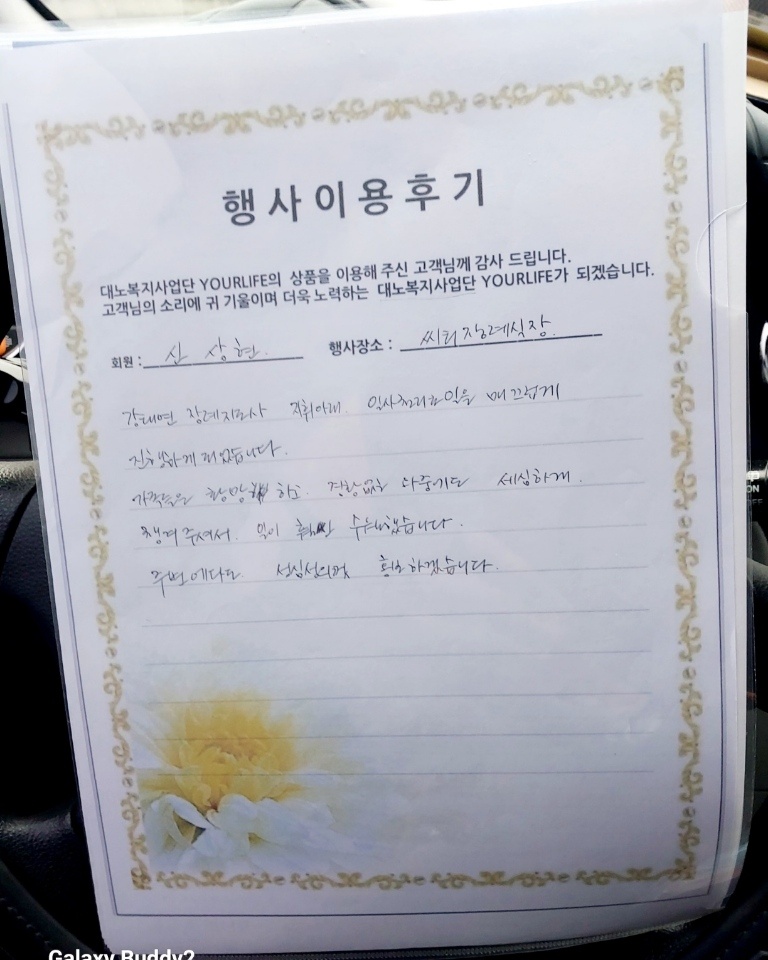 행사이용후기
대노복지사업단 YOURLIFE의 상품을 이용해 주신 고객님께 감사 드립니다.
고객님의 소리에 귀 기울이며 더욱 노력하는 대노복지사업단 YOURLIFE가 되겠습니다.
회원 : 신 상현. 행사장소 : 씨티장례식장.
강대연 장례지도사 지휘아래. 일사천리로 일을 매끄럽게
진행하게 되었습니다.
가족들은 황망 하고. 경황없는 와중에도 세심하게.
챙겨주셔서. 일이 수월했습니다.
주변에다도. 홍보하겠습니다.
Galaxy Buddy2